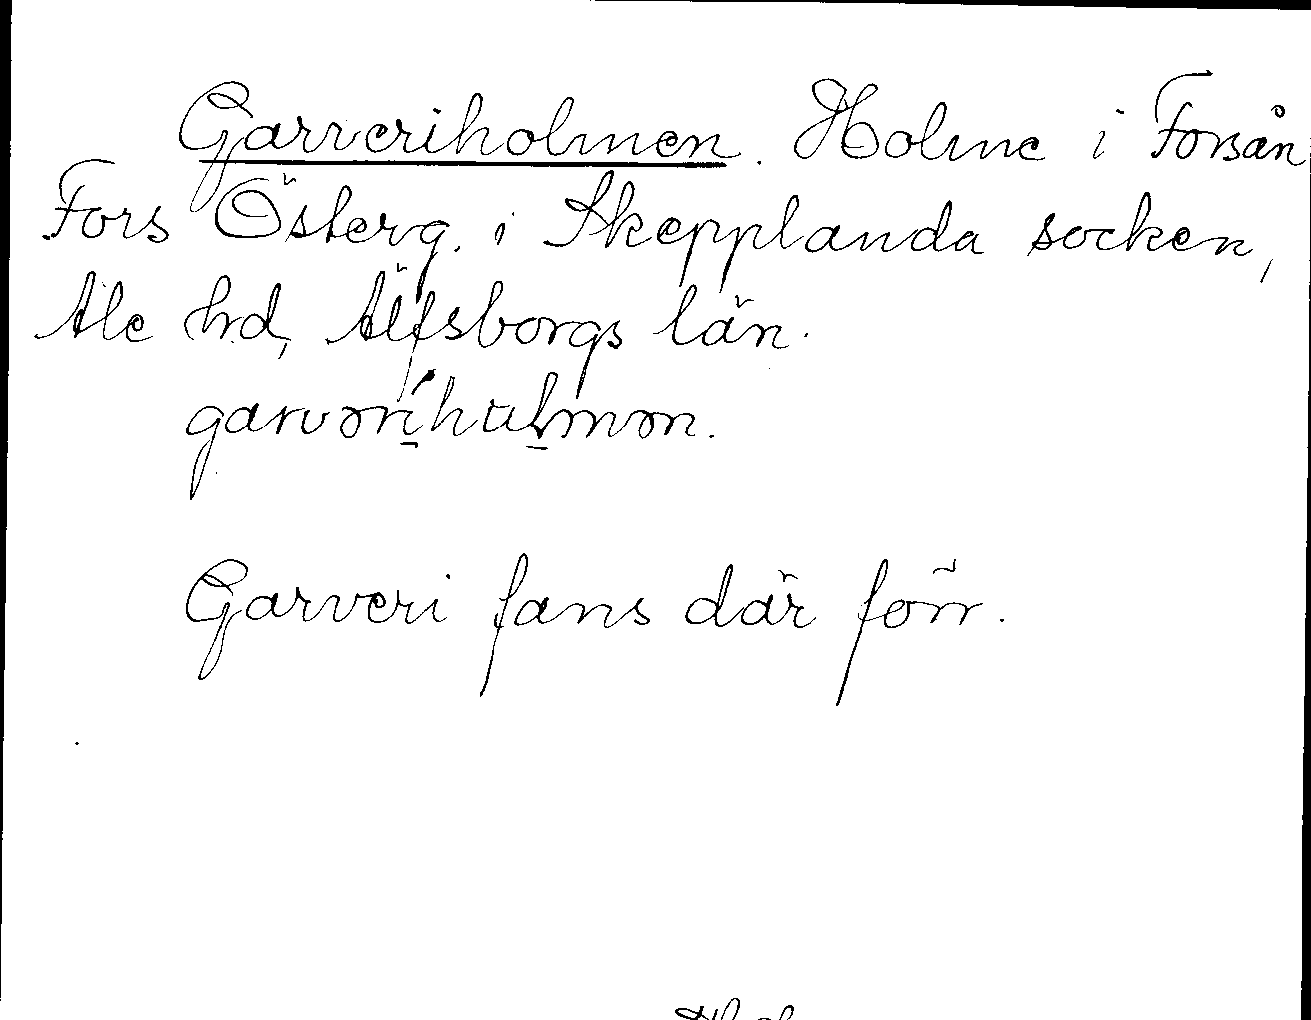 Garveriholmen. Holme i Forsån
Fors Österg. i Skepplanda socken,
Ale hd, Älfsborgs län.
Garveri fans där förr.